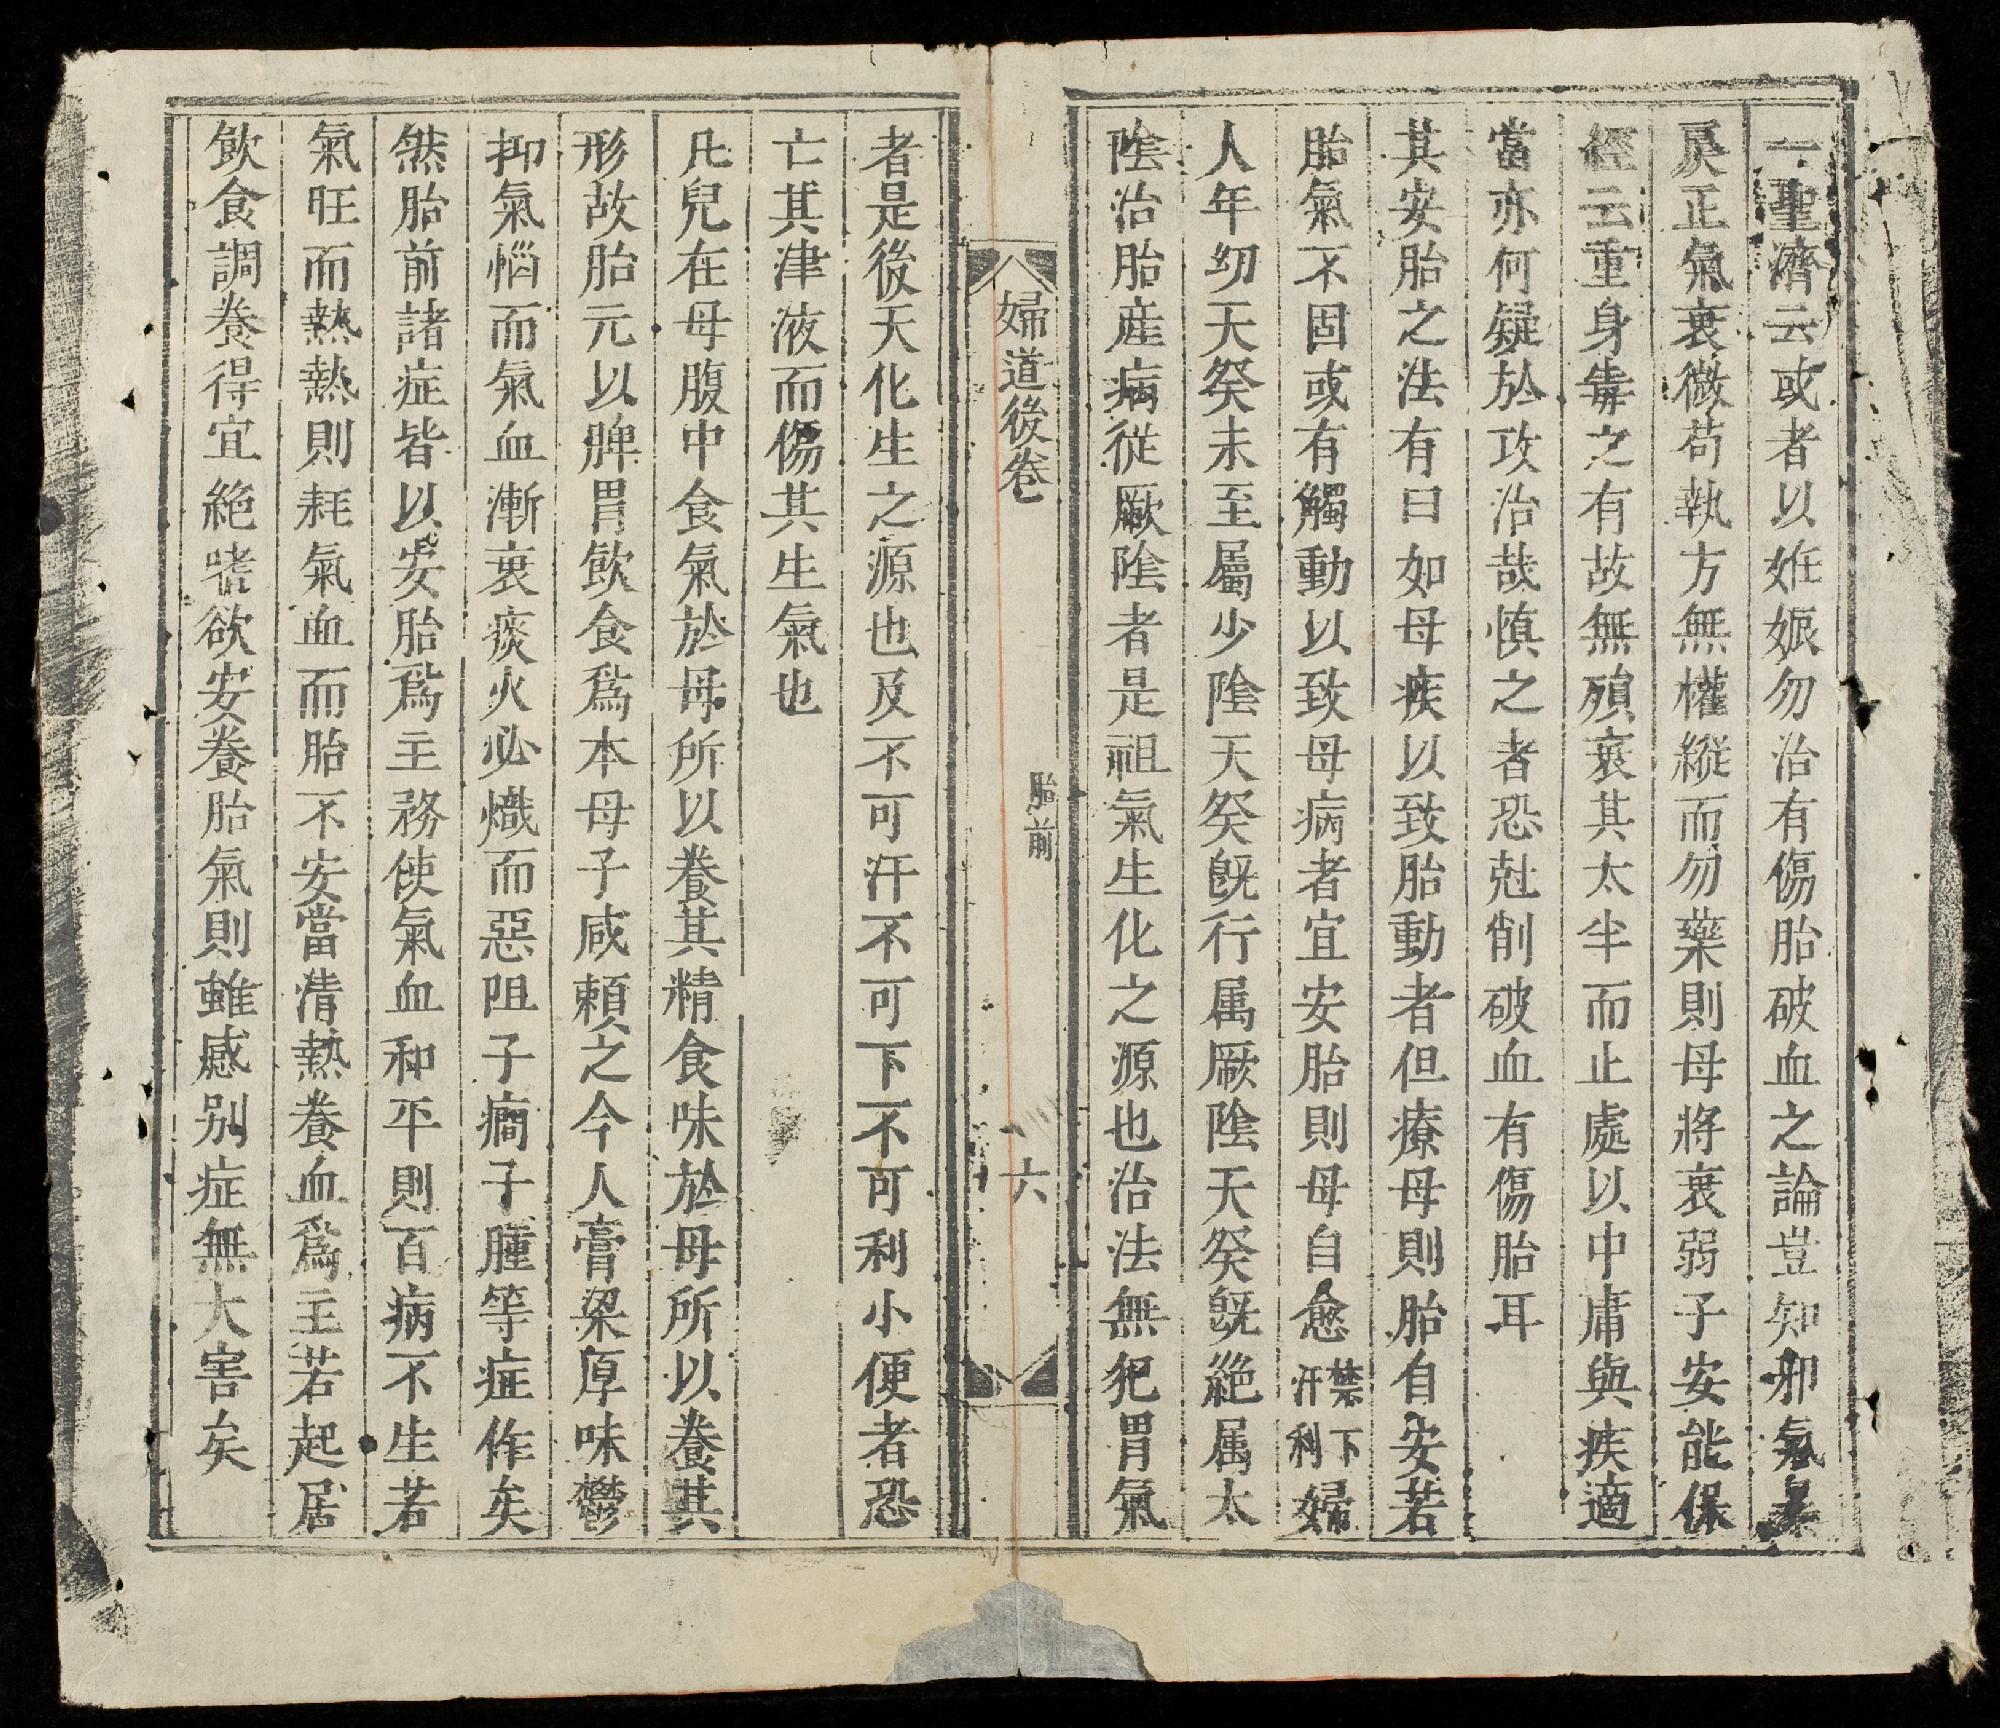 一聖濟云或者以姙娠勿治有傷胎破血之論豈知邪氣暴
戾正氣衰微苟執方無權縱而勿藥則母將衰弱子安能保
經云重身毒之有故無殞衰其太半而止處以中庸與疾適
當亦何疑於攻治哉慎之者恐尅削破血有傷胎耳
其安胎之法有曰如母疾以致胎動者但療母則胎自安若
胎氣不固或有觸動以致母病者宜安胎則母自愈禁下汗利婦
人年幼天癸未至屬少陰天癸既行属厥陰天癸既絕属太
陰治胎產病從厥陰者是祖氣生化之源也治法無犯胃氣
婦道後卷
胎前
六
者是後天化生之源也及不可汗不可下不可利小便者恐
亡其津液而傷其生氣也
凡兒在母腹中食氣於母所以養其精食味於母所以養其
形故胎元以脾胃飲食爲本母子咸賴之今人膏梁厚味鬱
抑氣惱而氣血漸衰痰火必熾而惡阻子癇子腫等症作矣
然胎前諸症皆以安胎爲主務使氣血和平則百病不生若
氣旺而熱熱則耗氣血而胎不安當清熱養血爲主若起居
飲食調養得宜絕嗜欲安養胎氣則雖感别症無大害矣